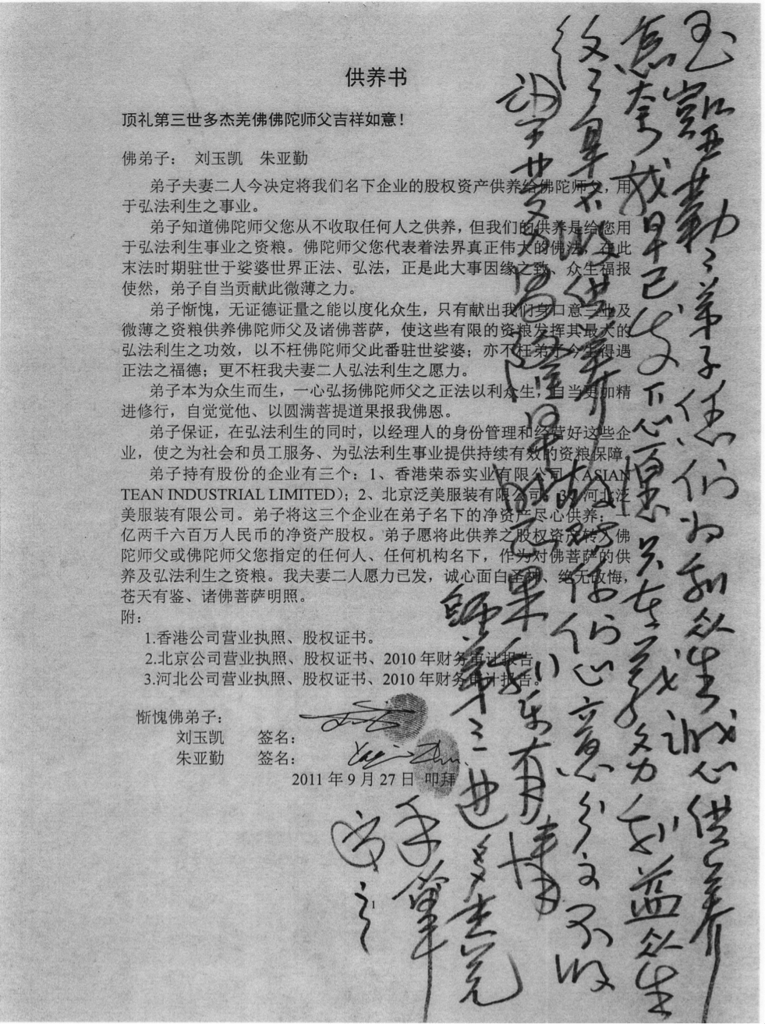 供养书
顶礼第三世多杰羌佛佛陀师父吉祥如意！
佛弟子： 刘玉凯 朱亚勤
弟子夫妻二人今决定将我们名下企业的股权资产供养给佛陀师父，用
于弘法利生之事业。
弟子知道佛陀师父您从不收取任何人之供养，但我们的供养是给您用
于弘法利生事业之资粮。佛陀师父您代表着法界真正伟大的佛法，在此
末法时期驻世于娑婆世界正法、弘法，正是此大事因缘之致、众生福报
使然，弟子自当贡献此微薄之力。
弟子惭愧，无证德证量之能以度化众生，只有献出我们身口意三业及
微薄之资粮供养佛陀师父及诸佛菩萨，使这些有限的资粮发挥其最大的
弘法利生之功效，以不枉佛陀师父此番驻世娑婆；亦不枉弟子今生得遇
正法之福德；更不枉我夫妻二人弘法利生之愿力。
弟子本为众生而生，一心弘扬佛陀师父之正法以利众生，自当更加精
进修行，自觉觉他、以圆满菩提道果报我佛恩。
弟子保证，在弘法利生的同时，以经理人的身份管理和经营好这些企
业，使之为社会和员工服务、为弘法利生事业提供持续有效的资粮保障
弟子持有股份的企业有三个：1、香港荣忝实业有限公司（ASIAN
TEAN INDUSTRIAL LIMITED）；2、北京泛美服装有限公司；3、河北泛
美服装有限公司。弟子将这三个企业在弟子名下的净资产尽心供养：
亿两千六百万人民币的净资产股权。弟子愿将此供养之股权资产转入佛
陀师父或佛陀师父您指定的任何人、任何机构名下，作为对佛菩萨的供
养及弘法利生之资粮。我夫妻二人愿力已发，诚心面白圣神、绝无改悔，
苍天有鉴、诸佛菩萨明照。
附：
1.香港公司营业执照、股权证书。
2.北京公司营业执照、股权证书、2010 年财务审计报告。
3.河北公司营业执照、股权证书、2010 年财务审计报告。
惭愧佛弟子：
刘玉凯 签名：
朱亚勤 签名：
2011 年 9 月 27 日 叩拜
玉凯亚勤二弟子你们为利众生诚心供养
我早已发下心愿只在义务利益众生
不收供养 你们心意分文不收
利乐有情
第三世多杰羌